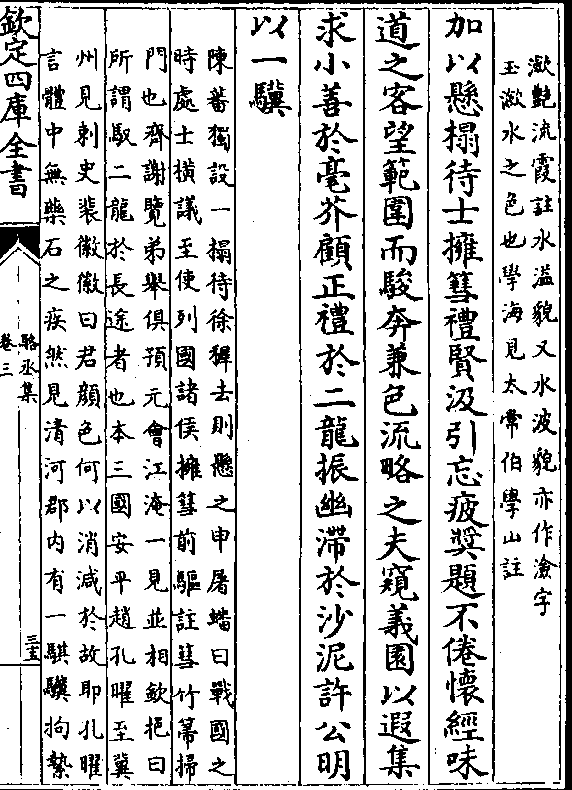 瀲艶流霞註水溢貌又水波貌亦作澰字
玉瀲水之色也學海見太常伯學山註
加以懸榻待士擁篲禮賢汲引忘疲奬題不倦懷經味
道之客望範圍而駿奔兼色流略之夫窺義園以遐集
求小善於毫芥顧正禮於二龍振幽滯於沙泥許公明
以一驥
陳蕃獨設一榻待徐穉去則懸之申屠蟠曰戰國之
時處士橫議至使列國諸侯擁篲前驅註篲竹箒掃
門也齊謝覽弟舉俱預元會江淹一見並相欽挹曰
所謂馭二龍於長途者也本三國安平趙孔曜至冀
州見刺史裴徽徽曰君顔色何以消減於故耶孔曜
言體中無藥石之疾然見清河郡内有一騏驥拘縶
欽定四庫全書
駱丞集
卷三
三五